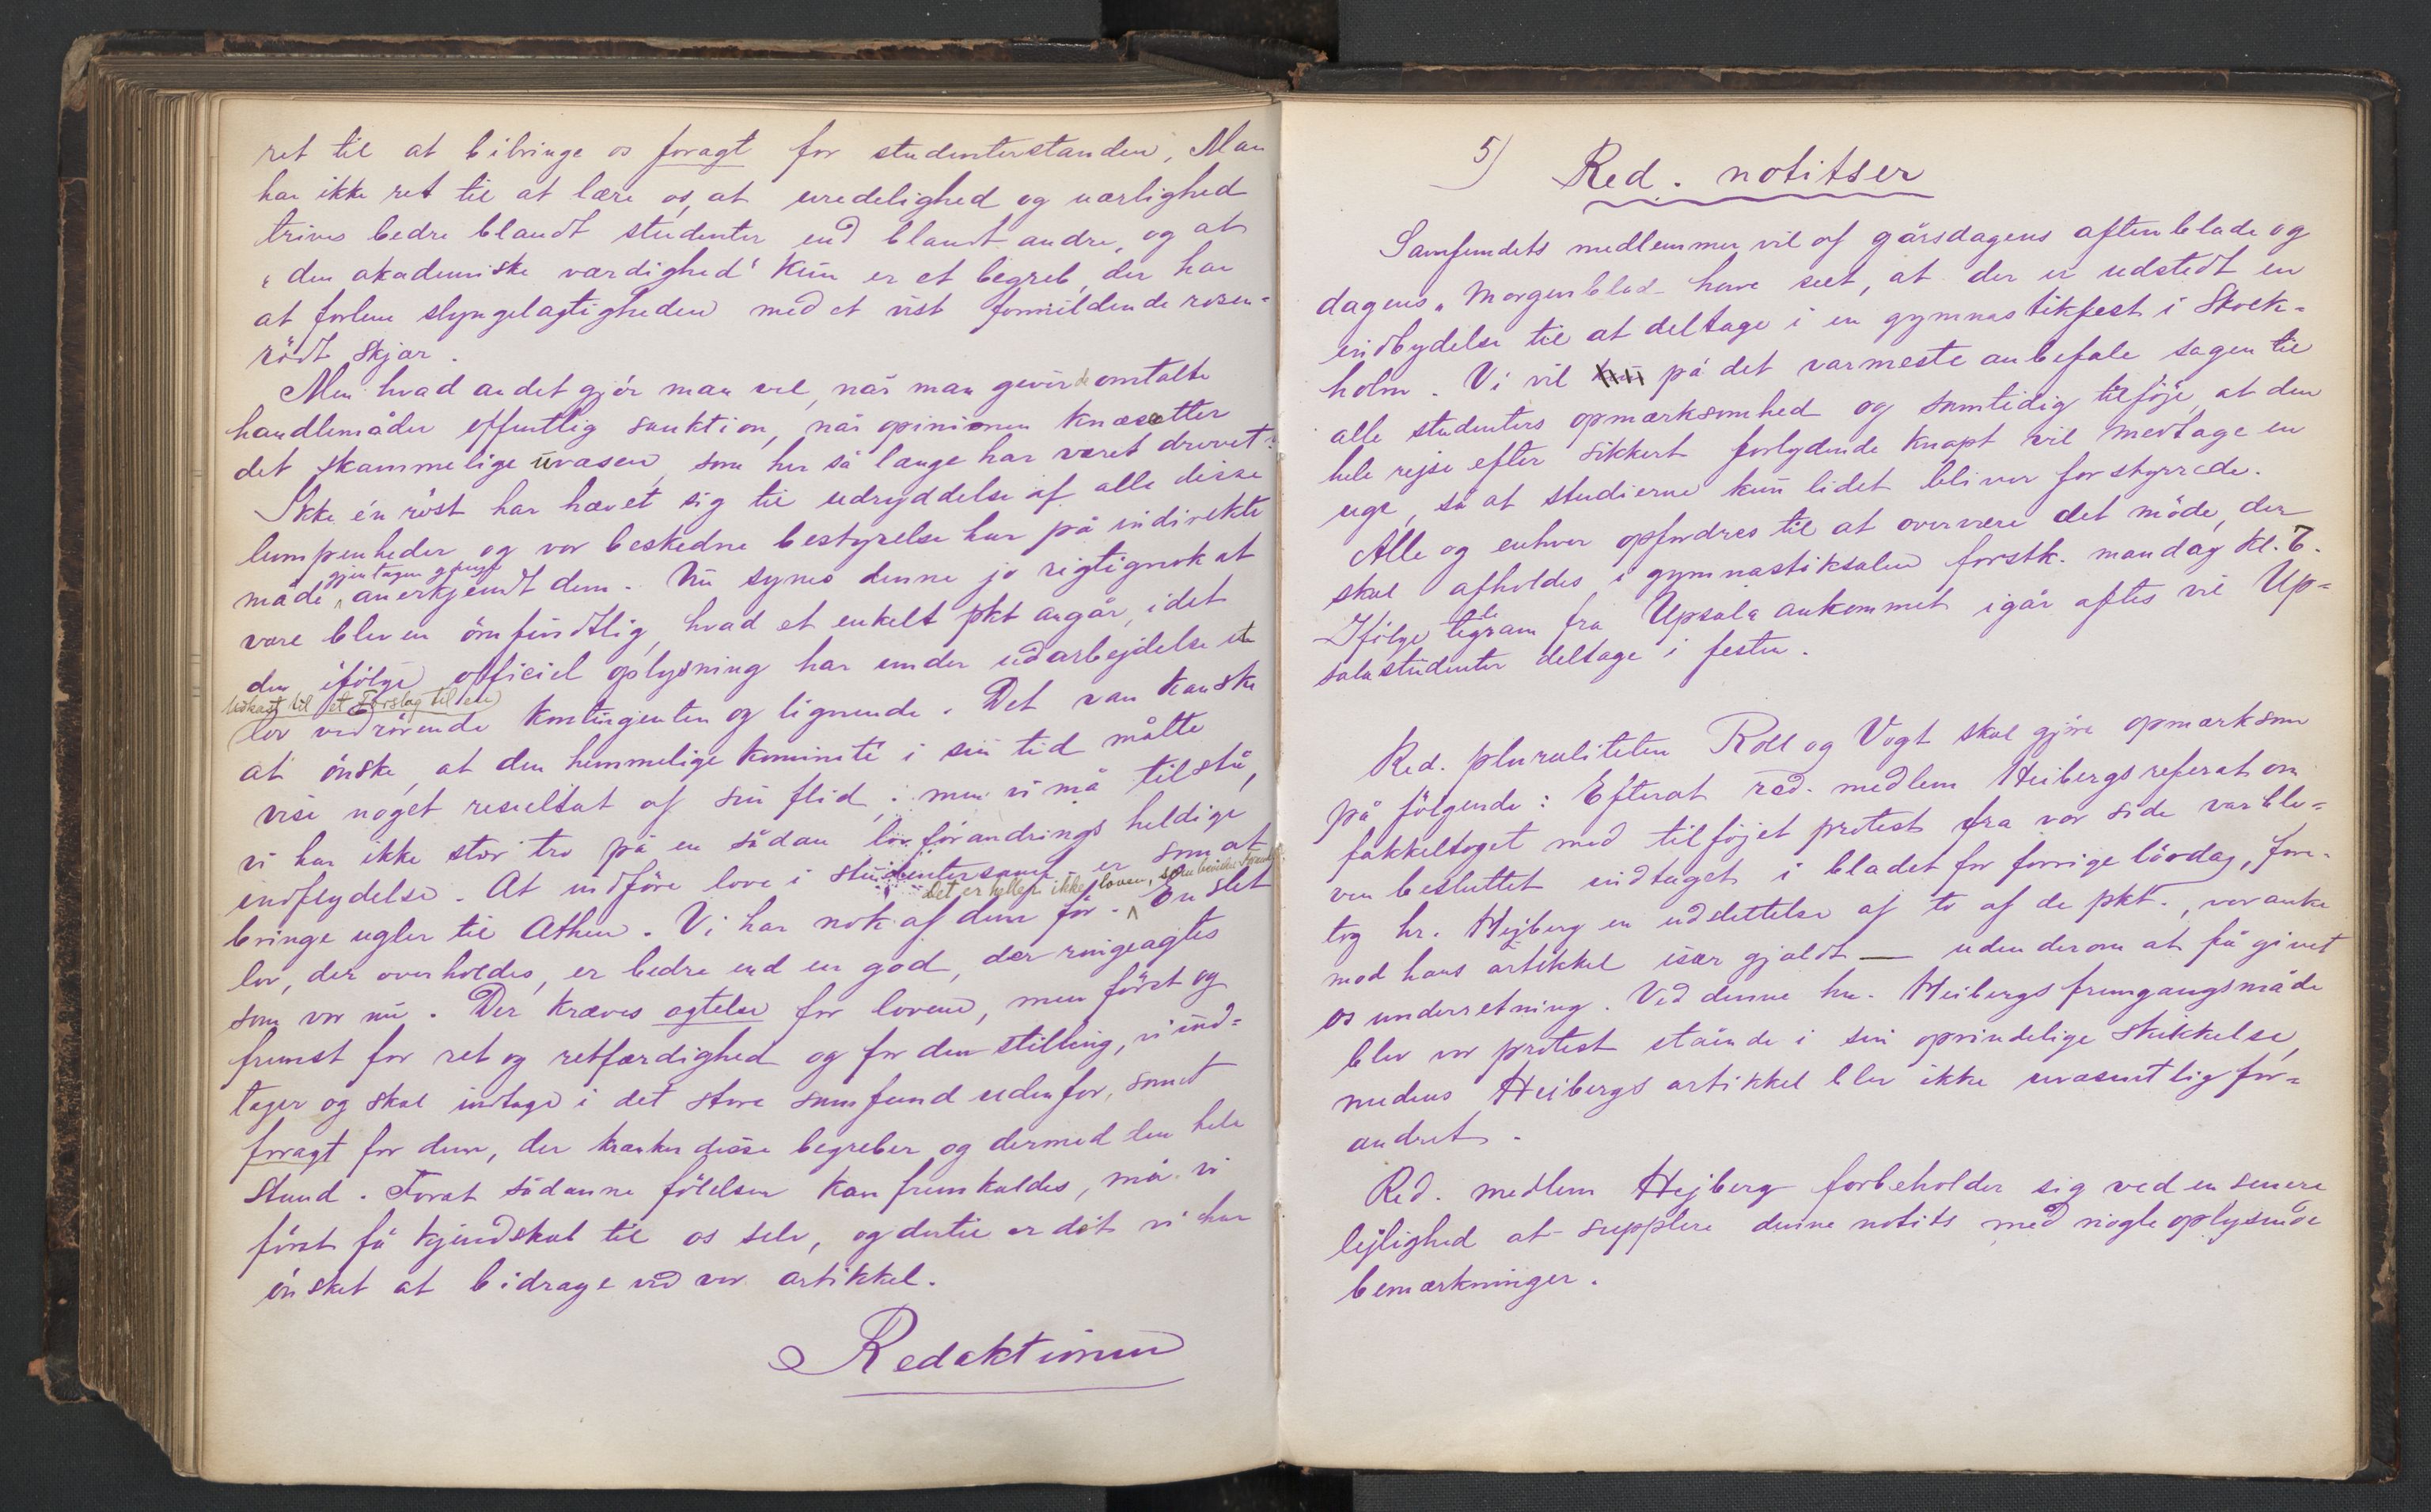 ret til at bibringe os foragt for studenterstanden, Man
har ikke ret til at lære os, at uredelighed og uærlighed
trives bedre blandt studenter end blandt andre, og at
„den akademiske værdighed“ kun er et begreb, der har
at forlene slyngelagtigheden med et vist formildende rosen-
rödt skjær.
Men hvad andet gjör man vel, når man giver de omtalte
handlemåder offentlig sanktion, når opinionen knæsætter
det skammelige uvæsen, som her så længe har været drevet?
Ikke én röst har hævet sig til udryddelse af alle disse
lumpenheder og vor beskedne bestyrelse har på indirekte
gjentagne gange
måde anerkjendt dem. Nu synes denne jo rigtignok at
være bleven ömfindtlig, hvad et enkelt pkt angår, idet
den ifölge officiel oplysning har under udarbejdelse et
Udkast til et Forslag til en
lov vedrörende kontingenten og lignende. Det var kanske
at önske, at den hemmelige kommité i sin tid måtte
vise noget resultat af sin flid; men vi må tilstå,
vi har ikke stor tro på en sådan lovforandrings heldige
indflydelse. At indföre love i studentersamf. er som at
Det er heller ikke loven, som
bringe ugler til Athen. Vi har nok af dem för. En slet
lov, der overholdes, er bedre end en god, der ringeagtes
som vor nu. Der kræves agtelse for lovene, men först og
fremst for ret og retfærdighed og for den stilling, vi ind-
tager og skal indtage i det store samfund udenfor, samt
foragt for dem, der krænker disse begreber og dermed den hele
stand. Forat sådanne fölelser kan fremkaldes, må vi
först få kjendskab til os selv, og dertil er det vi har
önsket at bidrage ved vor artikkel.
Redaktionen
5) Red. notitser
Samfundets medlemmer vil af gårsdagens aftenblade og
dagens „Morgenblad“ have seet, at der er udstedt en
indbydelse til at deltage i en gymnastikfest i Stock-
holm. Vi vil på det varmeste anbefale sagen til
alle studenters opmærksomhed og samtidig tilföje, at den
hele rejse efter sikkert forlydende knapt vil medtage en
uge, så at studierne kun lidet bliver forstyrrede.
Alle og enhver opfordres til at overvære det möde, der
skal afholdes i gymnastiksalen forstk. mandag kl. 7.
Ifölge telegram fra Upsala ankommet igår aftes vil Up-
salastudenter deltage i festen.
Red. pluraliteten Roll og Vogt skal gjöre opmærksom
på fölgende: Efterat red. medlem Heibergs referat om
fakkeltoget med tilföjet protest fra vor side var ble-
ven besluttet indtaget i bladet for forrige lördag, fore-
tog hr. Hejberg en udslettelse af to af de pkt., vor anke
mod hans artikkel især gjaldt — uden derom at få givet
os underretning. Ved denne hr. Heibergs fremgangsmåde
blev vor protest stående i sin oprindelige skikkelse,
medens Heibergs artikkel blev ikke uvæsentlig for-
andret.
Red. medlem Hejberg forbeholder sig ved en senere
lejlighed at supplere denne notits med nogle oplysende
bemærkninger.